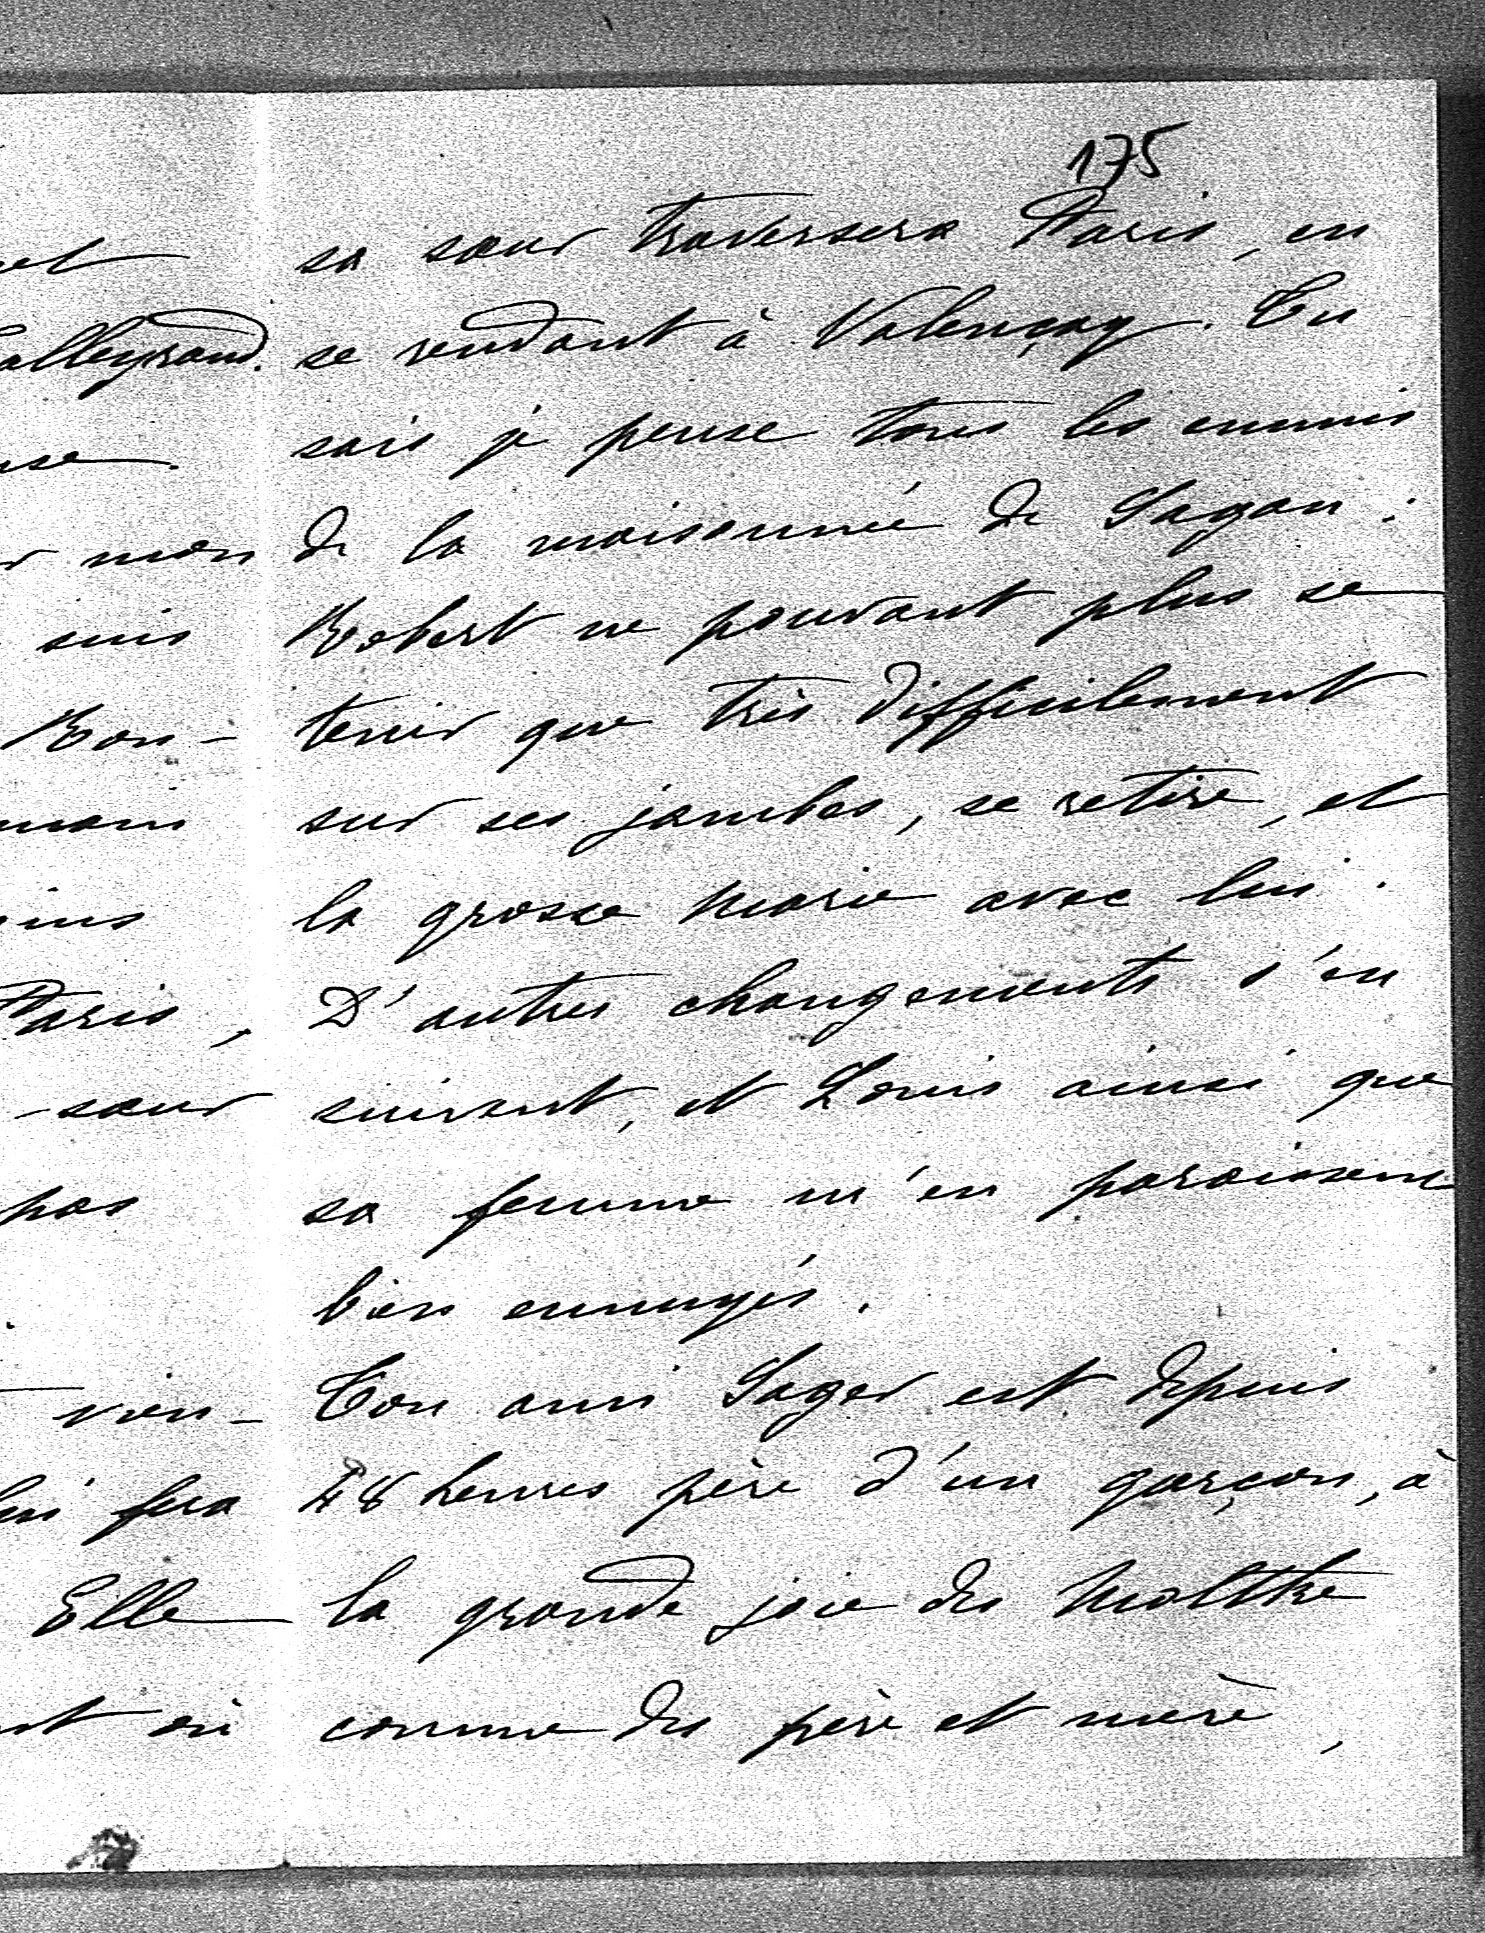 et
alleyrand.
use.
r mon
suis
Bon-
mains
ins
Paris,
-sœur
pas
.
vien-
lui fera
Elle
nt où
175
sa sœur traversera Paris, en
se rendant à Valençay. Tu
sais je pense tous les ennuis
de la maisonnée de Sagan :
Robert ne pouvant plus se
tenir que très difficilement
sur ses jambes, se retire, et
la grosse Marie avec lui.
D'autres changements s'en
suivent, et Louis ainsi que
sa femme m'en paraissent
bien ennuyés.
Ton ami Sager est depuis
48 heures père d'un garçon, à
la grande joie des Moltke
comme des père et mère,